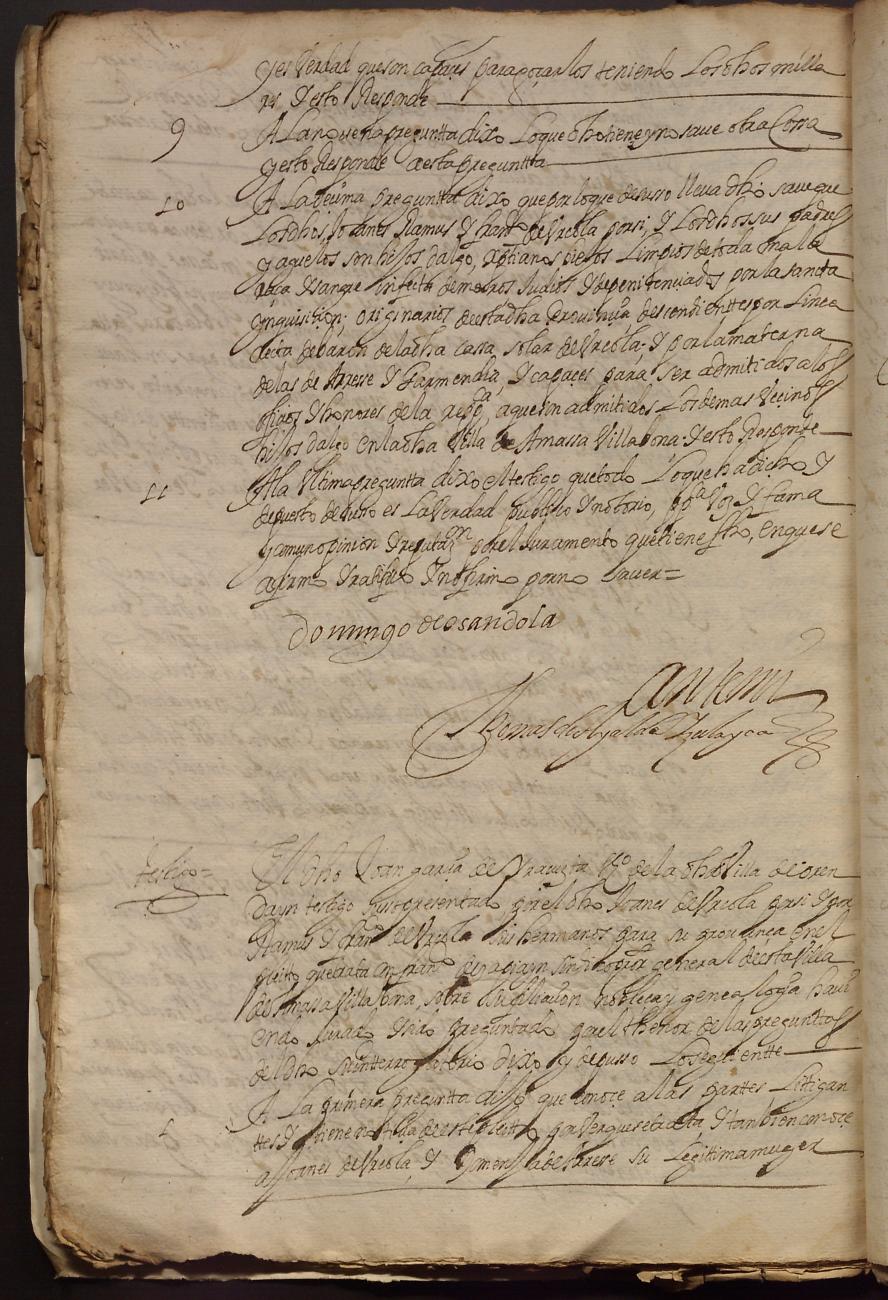 y es Verdad que son capaçes para goçar los teniendo Los dhos milla
res Y esto Responde
9 A La novena preguntta dixo Lo que dho tiene y no save otra Cossa
y esto Responde a esta preguntta
10 A La deçima preguntta dixo que por lo que de susso lleva dho save que
Los dhos Joanes Ramus Y fran.co de Vrcola por si, Y Los dhos sus padres
y aguelos son hijos dalgo, xptianos viejos Limpios de toda malla
raça Y sangre infecta de moros Judios Y de penitenciados por la sancta
ynquisiçion; originarios de esta dha Provinçia desçendienttes por Linea
recta de baron de la dha cassa solar de Vrcola, Y por la materna
de las de Arrese Y Garmendia, Y capaçes para ser admitidos a los
ofiçios Y honores de la repp.ca a que son admitidos Los demas Veçinos
hijos dalgo en la dha Villa de Amassa Villabona Y esto Responde
11 A la Vltima preguntta dixo el testigo que todo Lo que ha dicho Y
depuesto de susso es La Verdad publico Y notorio, pp.ca Voz Y fama
y comun opinion Y reputaz.on por el Juramento que tiene fho, en que se
afirmo Y ratifico Y no firmo por no saver=
Domingo de osandola
Ante mi
Thomas de Ugalde Zulayca
testigo=
El dho Joan garçia de Yraçusta Vz.o de la dha Villa de oren
dayn testigo susso presentado por el dho Joanes de Vrcola por si Y por
Ramus Y fran.co de Vrcola sus hermanos para su provança en el
pleito que trata con fran.co de
sindico pror general de esta Villa
de Amassa Villabona, sobre su filiaçion nobleça y genealogia havi
endo Jurado Y sido preguntado por el thenor de las preguntas
del dho su interrogatorio dixo y depusso Lo seguiente
1 A La primera preguntta dixo que conoçe a las parttes Littigan
tes Y tiene notiçia de este pleito por aver que se trata Y tanbien conoçe
a Joanes de Vrcola, Y Domenja de Arrese su Legittima muger